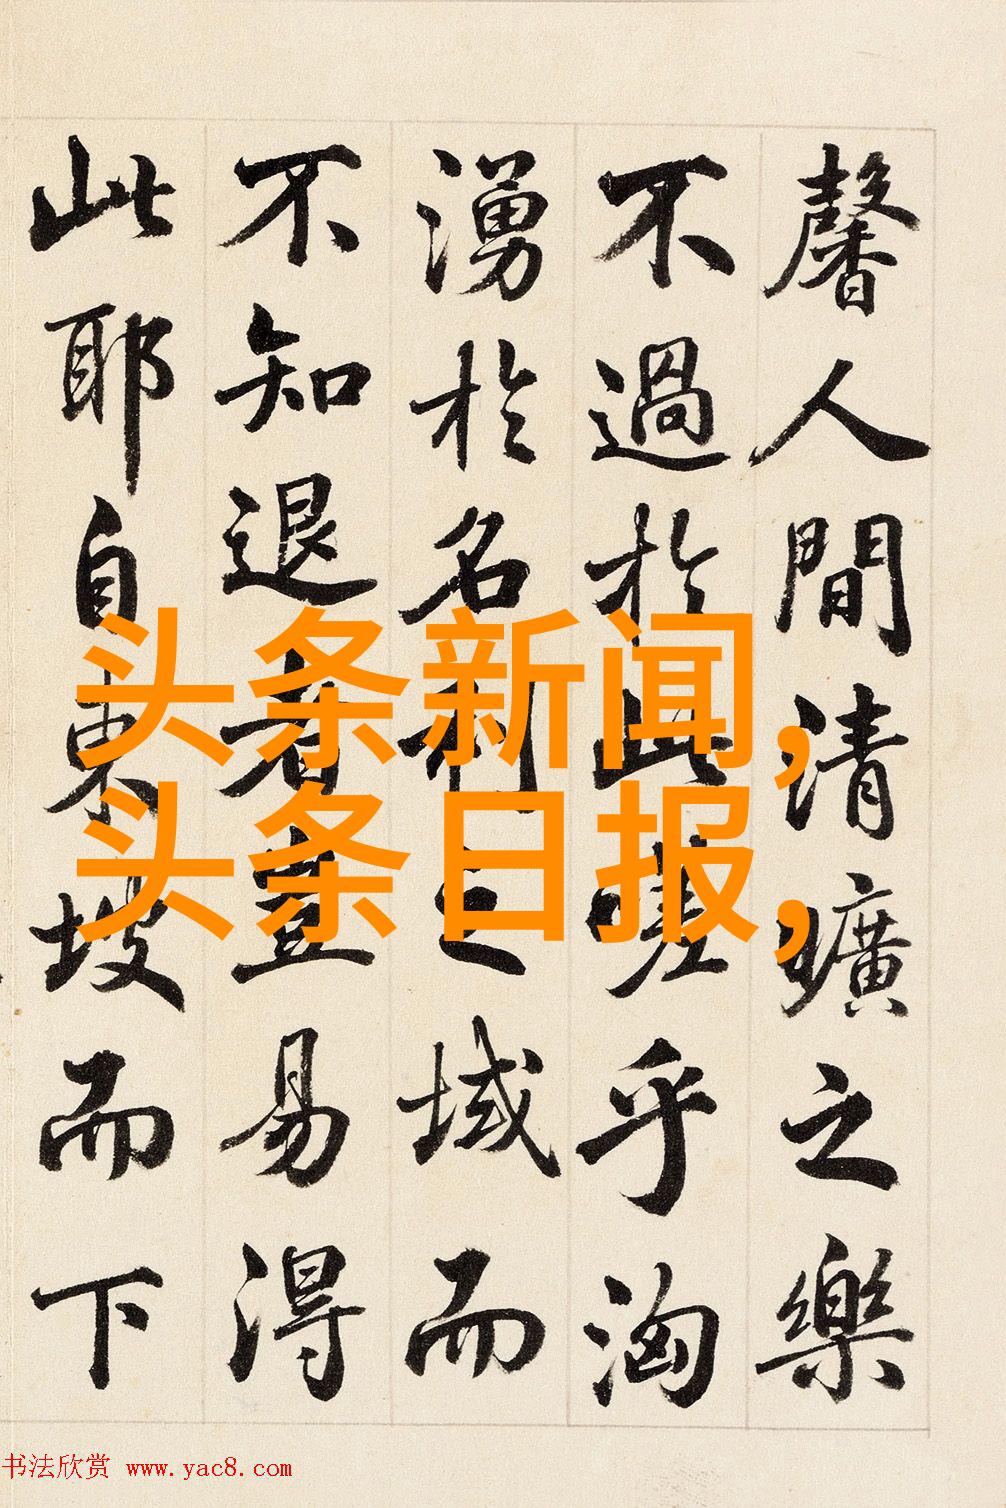 馨人間清曠之樂
不過於此嗟乎洶
湧於名利之域而
不知退者豈易得
此耶自東坡而下
头条新闻,
头条日报,
书法欣赏 www.yac8.com